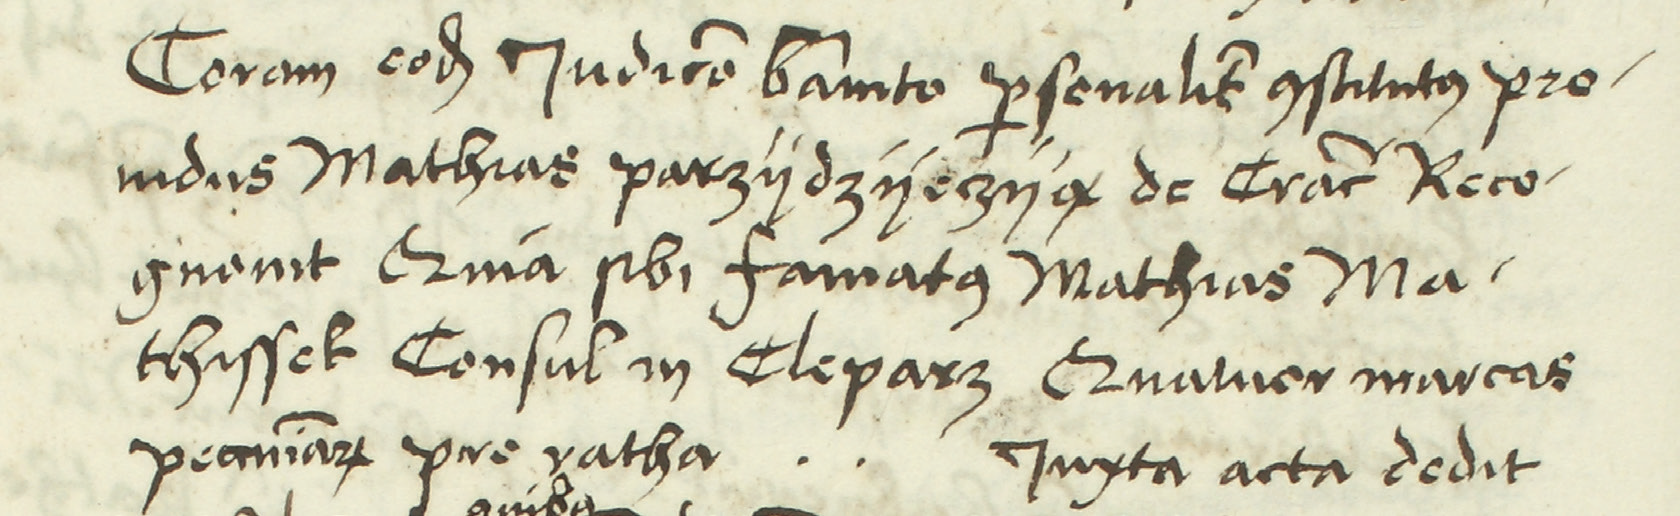 Coram eod Iudicio bannito psonalit ꝯstitutꝰ pro-
uidus Mathias parzÿdzÿeczÿα de Crac Reco-
gnouit Quia sibi famatꝰ Mathias Ma-
thissek Consul in Cleparz Quatuor marcas
pecuniaꝝ pro ratha . . Iuxta acta dedit
quibꝰ